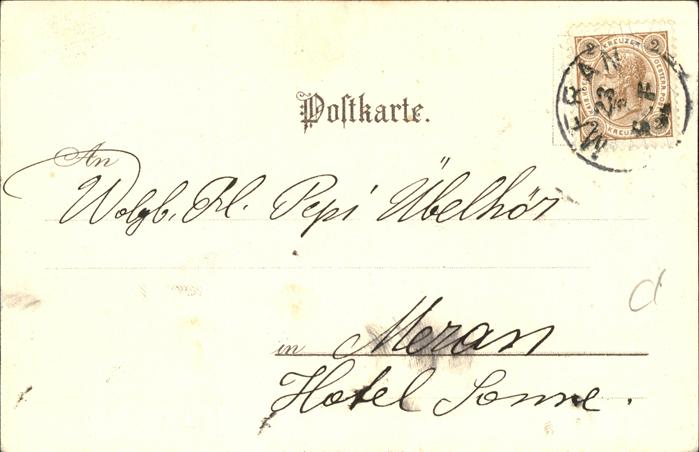 2 KREUZER 2
MERAN
23
Postkarte.
An
Wolgb. Frl. Pepi Übelhör
in Meran
Hotel Sonne.